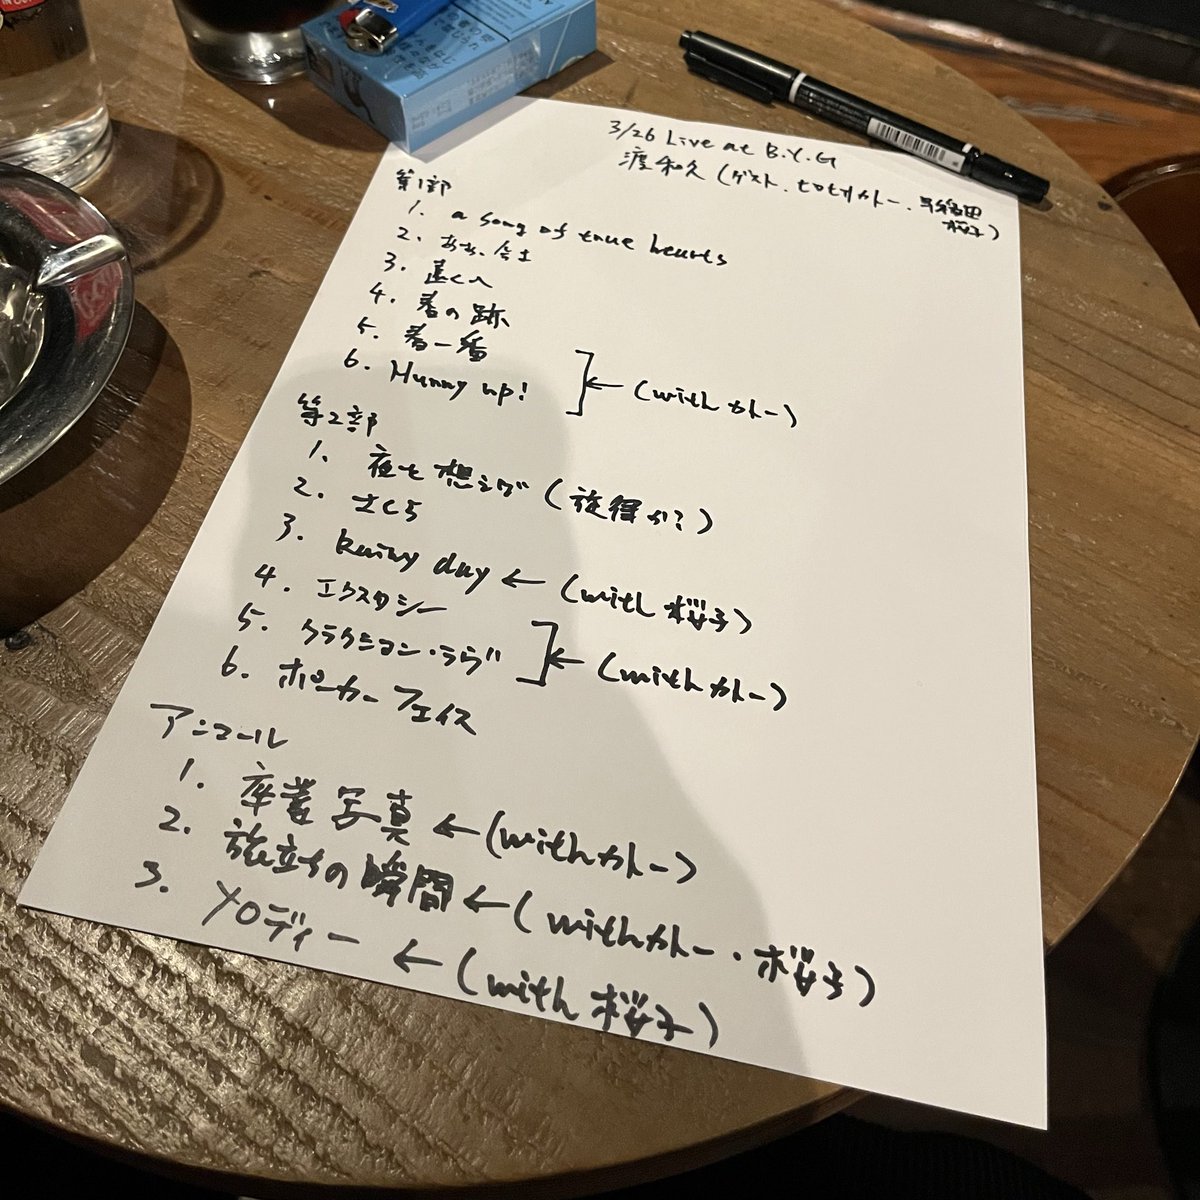 3/26 Live at B.Y.G
渡和久 (ゲスト.ヒロヒサカトー.早稲田
桜子)
第1部
1. a song of true hearts
2. ああ、今き
3. 遠くへ
4. 春の跡
5. 春一番
6. Hurry up! ← (with カトー)
第2部
1. 夜を想シグ (旋律か?)
2. さくら
3. Rainy day ← (with 桜子)
4. エクスタシー
5. クラクション・ラヴ ← (with カトー)
6. ポーカーフェイス
アンコール
1. 卒業写真 ← (with カトー)
2. 旅立ちの瞬間 ← (with カトー・桜子)
3. メロディー ← (with 桜子)